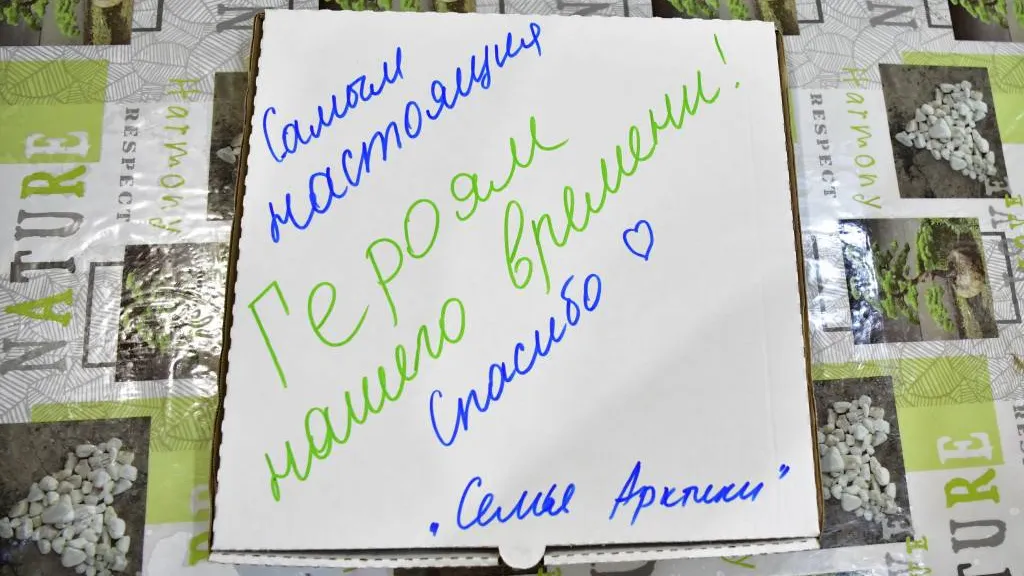 Самым
настоящим
Героям
нашего времени!
Спасибо ♡
„Семья Арктики"
NATURE
RESPECT
Harmony
RESPECT
Harmony
NATURE